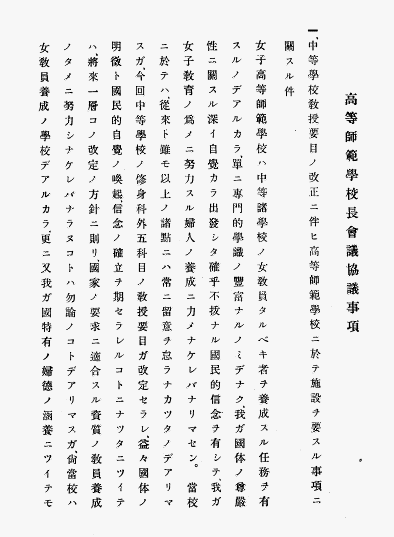 高等師範學校長會議協議事項
一、中等學校敎授要目ノ改正ニ伴ヒ高等師範學校ニ於テ施設ヲ要スル事項ニ
關スル件
女子高等師範學校ハ中等諸學校ノ女敎員タルベキ者ヲ養成スル任務ヲ有
スルノデアルカラ、單ニ專門的學識ノ豐富ナルノミデナク、我ガ國体ノ尊嚴
性ニ關スル深イ自覺カラ出發シタ確乎不拔ナル國民的信念ヲ有シテ、我ガ
女子敎育ノ爲メニ努力スル婦人ノ養成ニ力メナケレバナリマセン。當校
ニ於テハ、從來ト雖モ以上ノ諸點ニハ常ニ留意ヲ怠ラナカツタノデアリマ
スガ、今回中等學校ノ修身科外五科目ノ敎授要目ガ改定セラレ、益々國体ノ
明徵ト國民的自覺ノ喚起、信念ノ確立ヲ期セラレルコトニナツタニツイテ
ハ、將來一層コノ改定ノ方針ニ則リ、國家ノ要求ニ適合スル資質ノ敎員養成
ノタメニ努力シナケレバナラヌコトハ勿論ノコトデアリマスガ、尙當校ハ
女敎員養成ノ學校デアルカラ、更ニ又我ガ國特有ノ婦德ノ涵養ニツイテモ